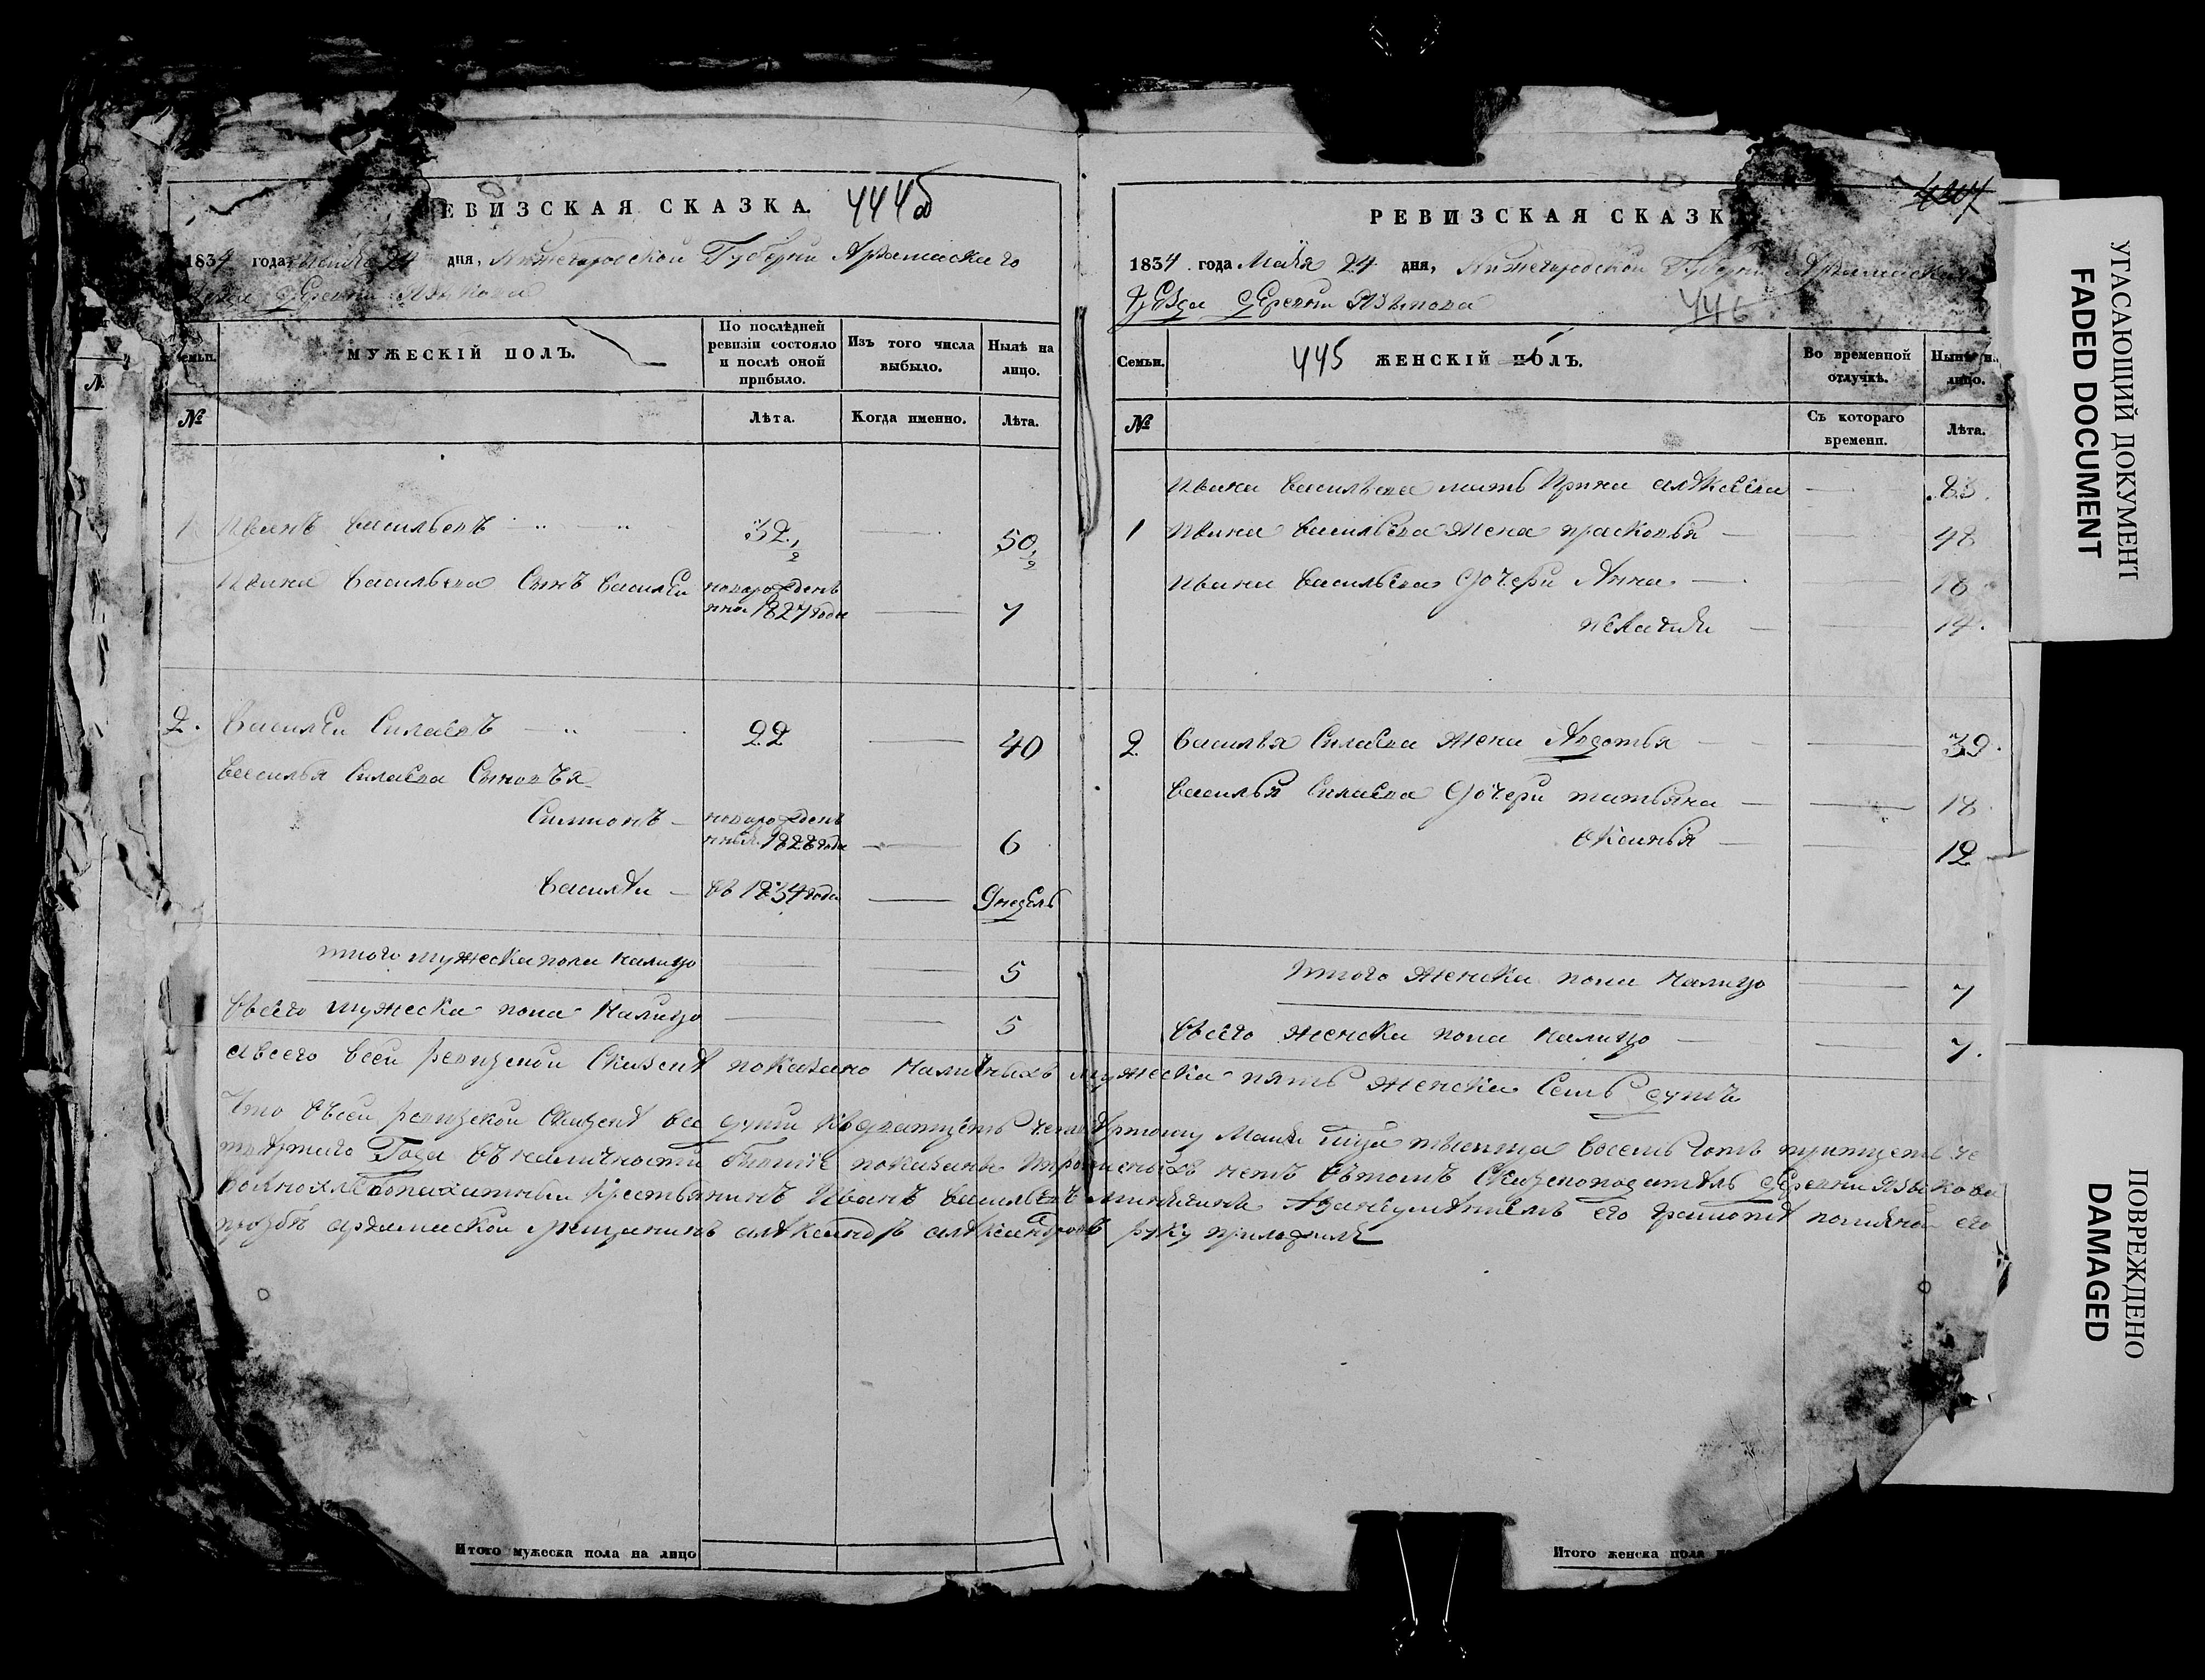 РЕВИЗСКАЯ СКАЗКА. 444об
1834 года Мая 24 дня, Нижегородской Губерни Арзамаскаго
Уезда деревни Языкова
Семьи.
МУЖЕСКІЙ ПОЛЪ.
По послѣдней ревизіи состояло и послѣ оной прибыло.
Изъ того числа выбыло.
Нынѣ на лицо.
№
Лѣта.
Когда именно.
Лѣта.
1 Иванъ Васильевъ 32 1/2 50 1/2
Ивана Васильева Сынъ Василеи новорожден
нои 1827 года 7
2. Василеи Силаевъ 22 40
Василья Силаева Сыновья
Симионъ новорожден
ныи 1828 года 6
Василѣи въ 1834 года 9 недель
итого мужеска пола налицо 5
Всего мужеска пола налицо 5
РЕВИЗСКАЯ СКАЗК
4207
1834 года Майя 24 дня, Нижегородской Губерни Арзамаскаго
Уезда деревни Языкова 446
Семьи.
445 ЖЕНСКІЙ ПОЛЪ.
Во временной отлучкѣ.
Нынѣ на лицо.
№
Съ котораго времени.
Лѣта.
Ивана Васильева мать Ирина алѣксеева 83.
1 Ивана Васильева Жена прасковья 48
Ивана Васильева дочери Анна 18
пелагия 14.
2 Василья Силаева жена Авдотья 39.
Василья Силаева дочери татьяна 18
Оксинья 12
Итого женска пола налицо 7
Всего женска пола налицо 7.
а всего всеи ревизскои Сказкѣ показано наличныхъ мужеска пять женска Семь душъ
Что всеи ревизскои Сказкѣ все души къ дватцеть четвѣртому Маия месеца восемь сотъ тритцеть че
твѣртаго Года въ наличности бывшие показаны и прописных нетъ въ томъ Сказкоподатель деревни Языкова
вольнохлебопахатныи крестьянинъ Иванъ Васильевъ его грамоте по личнои его
прозбе арзамаскои мещанинъ алѣксандръ алѣксандровъ руку приложилъ
Итого мужеска пола на лицо
Итого женска пола
УГАСАЮЩИЙ ДОКУМЕНТ
FADED DOCUMENT
ПОВРЕЖДЕНО
DAMAGED